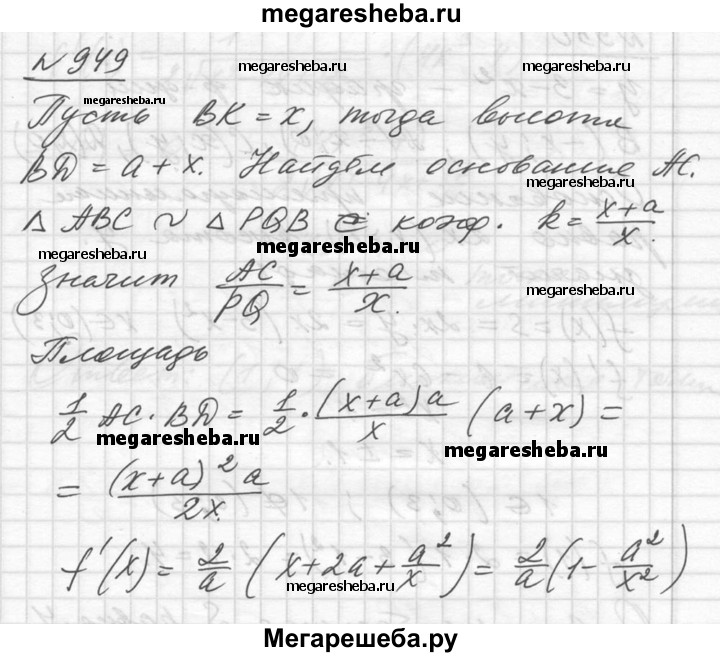 megaresheba.ru
№949
megaresheba.ru
megaresheba.ru
megaresheba.ru
Пусть BK = x, тогда высота
BD = a + x. Найдём основание AC.
△ ABC ∼ △ PQB с коэф. k = \frac{x+a}{x}.
megaresheba.ru
megaresheba.ru
Значит \frac{AC}{PQ} = \frac{x+a}{x}.
megaresheba.ru
Площадь
\frac{1}{2} AC · BD = \frac{1}{2} · \frac{(x+a)a}{x} (a+x) =
megaresheba.ru
megaresheba.ru
= \frac{(x+a)^2 a}{2x}.
f'(x) = \frac{2}{a} (x+2a+\frac{a^2}{x}) = \frac{2}{a}(1-\frac{a^2}{x^2})
megaresheba.ru
Мегарешеба.ру